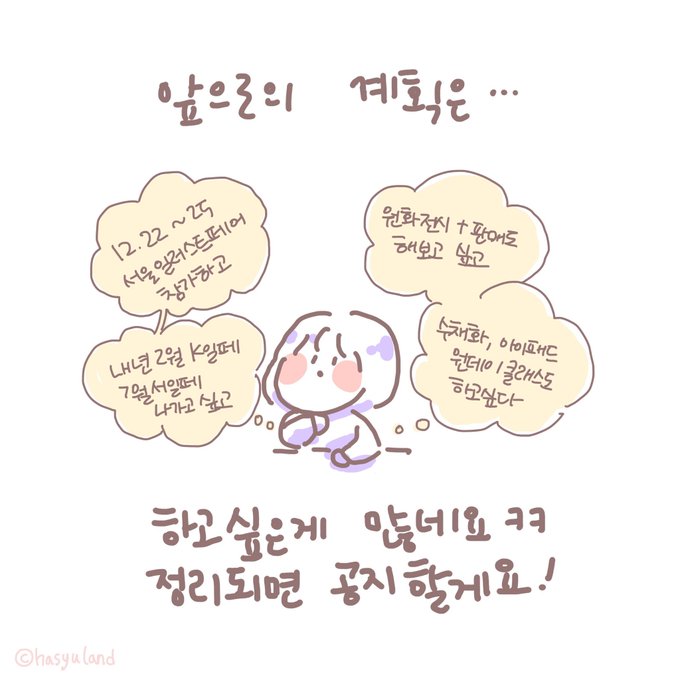 앞으로의 계획은 …
12.22 ~ 25
서울일러스트페어
참가하고
내년 2월 K일페
7월 서일페
나가고 싶고
원화전시 + 판매도
해보고 싶고
수채화, 아이패드
원데이 클래스도
하고싶다
하고싶은게 많네요 ㅋㅋ
정리되면 공지할게요!
©hasyuland